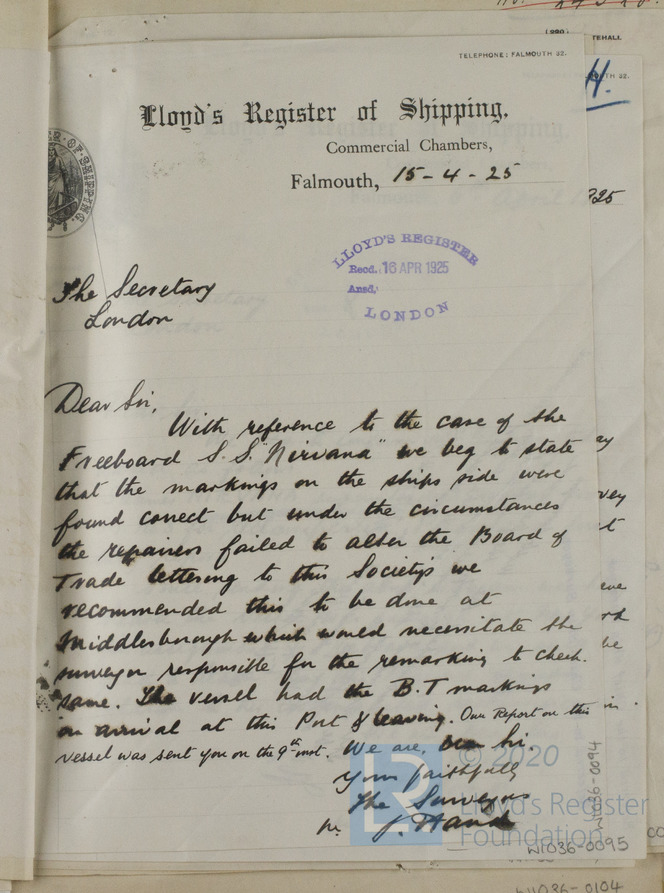 TELEPHONE: FALMOUTH 32.
Lloyd's Register of Shipping,
Commercial Chambers,
Falmouth, 15-4-25
LLOYD'S REGISTER
Recd. 16 APR 1925
Ansd.
LONDON
The Secretary
London
Dear Sir,
With reference to the case of the
Freeboard S.S. "Nirvana" we beg to state
that the markings on the ships side were
found correct but under the circumstances
the repairers failed to alter the Board of
Trade lettering to this Society's we
recommended this to be done at
Middlesborough which would necessitate the
surveyor responsible for the remarking to check
same. The vessel had the B.T markings
on arrival at this Port & leaving. Our Report on this
vessel was sent you on the 9th inst. We are, Dear Sir.
Your faithfully
The Surveyors
pr J. Hand
© 2020
Lloyd's Register
Foundation
W1036-0095
W1036-0094
W1036-0104
TEHALL
H.
925